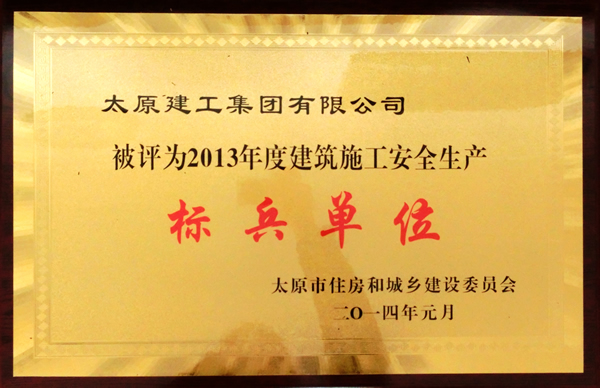 太原建工集团有限公司
被评为2013年度建筑施工安全生产
标兵单位
太原市住房和城乡建设委员会
二O一四年元月